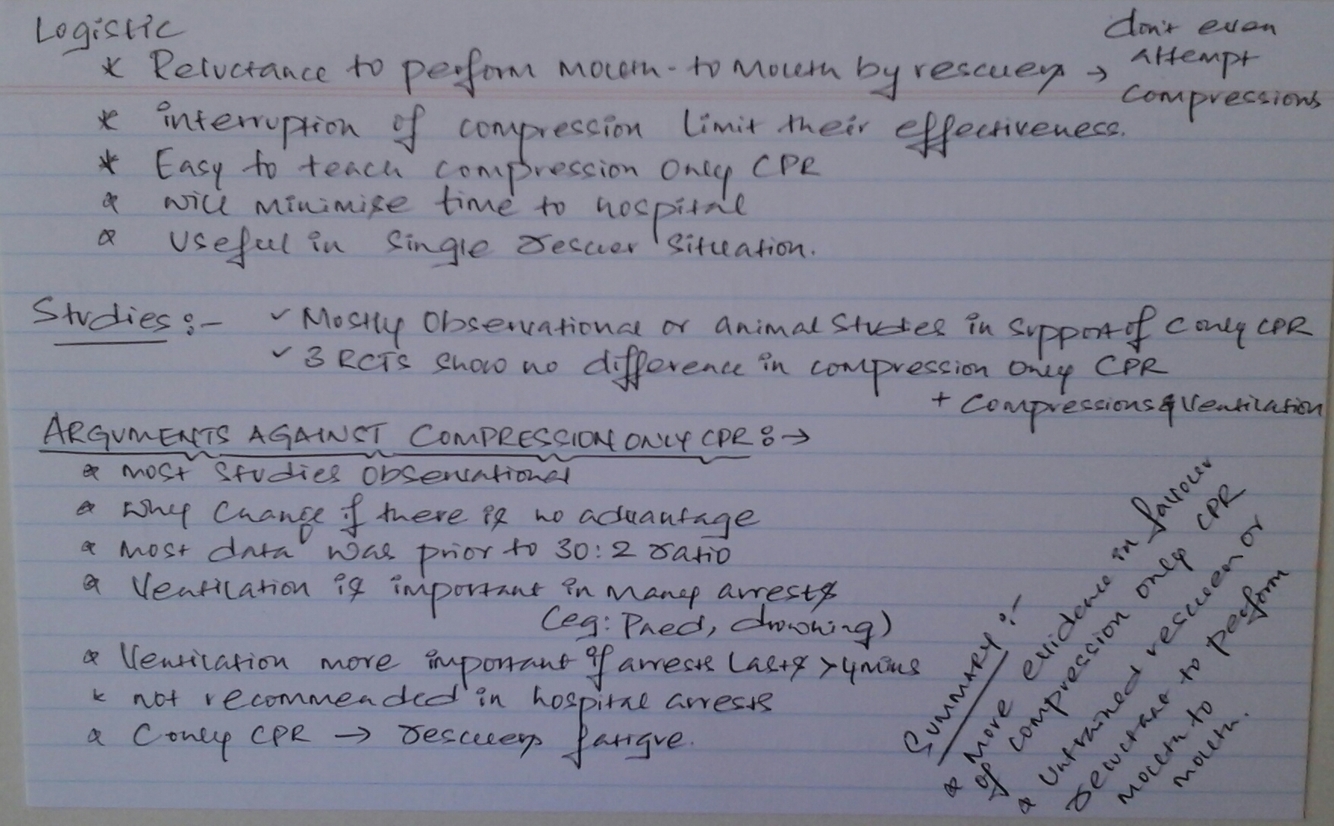 Logistic
* Reluctance to perform mouth-to mouth by rescuers → don't even
attempt
compressions
* interruption of compression limit their effectiveness.
* Easy to teach compression only CPR
* will minimise time to hospital
* Useful in single rescuer situation.
Studies :-
✓ Mostly Observational or animal studies in support of C only CPR
✓ 3 RCTS show no difference in compression only CPR
+ Compressions & Ventilation
ARGUMENTS AGAINST COMPRESSION ONLY CPR :→
* most studies observational
* why change if there is no advantage
* most data was prior to 30:2 ratio
* Ventilation is important in many arrests
(eg: Paed, drowning)
* Ventilation more important if arrests lasts >4mins
* not recommended in hospital arrests
* C only CPR → rescuers fatigue.
SUMMARY :-
* more evidence in favour
of compression only CPR
* Untrained rescuer or
reluctant to perform
mouth to
mouth.